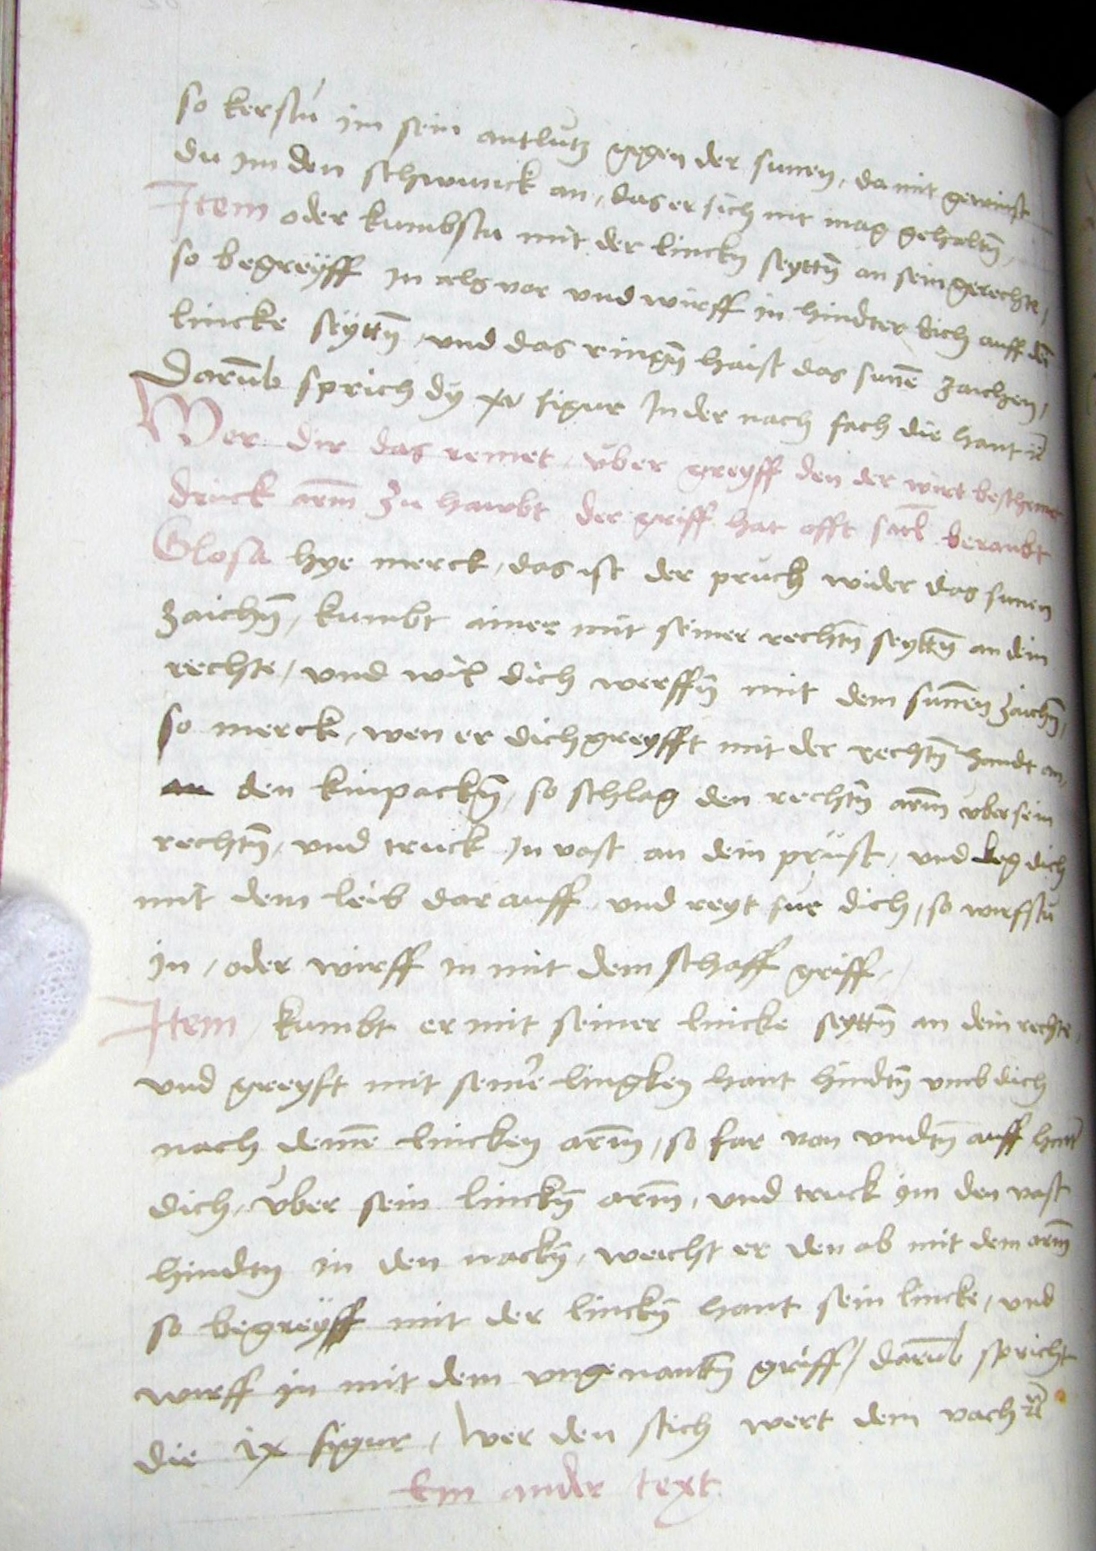 so kerstu im sein antlutz gegen der sunen, da mit gewinst
du im den schwunck an, das er sich nit mag gehaltn̄,
Item oder kumbstu mit der linckn̄ seyttn̄ an sein gerechte,
so begreÿff in als vor vnd wirff in hindter dich auff dē
lincke seÿttn̄, vnd das ringn̄ haist das sunē zaichen,
Darūb sprich dÿ xv figur In der nach fach die hant
Wer dir das remet, über greyff den der wirt beschemt
druck arm̄ zu hawbt der griff hat offt beraubt
Glosa hye merck, das ist der pruch wider das sunen
zaichn̄, kumbt ainer mit seiner rechtn̄ seyttn̄ an dein
rechte, vnd wil dich werffn̄ mit dem sun̄en zaichn̄,
so merck, wen er dich greyfft mit der rechtn̄ handt an,
den kinpackn̄, so schlag den rechtn̄ arm̄ vber sein
rechtn̄, vnd truck in vast an dein prüst, vnd leg dich
mit dem leib dar auff vnd reyt für dich, so wirfstu
in, oder wirff in mit dem schaff griff,
Item, kumbt er mit seiner lincke seyttn̄ an dein rechte,
vnd greyft mit seiner lingken hant hindtn̄ vmb dich
nach deinē lincken arm̄, so far von vndtn̄ auff
dich, vber sein linckn̄ arm̄, vnd truck im den vast
hindtn̄ in den nackn̄, weicht er den ab mit dem arm̄
so begreÿff mit der linckn̄ hant sein lincke, vnd
wirff in mit dem vngenantn̄ griff, darūb spricht
die ix figur, Wer den stich wert dem nach
Ein ander text